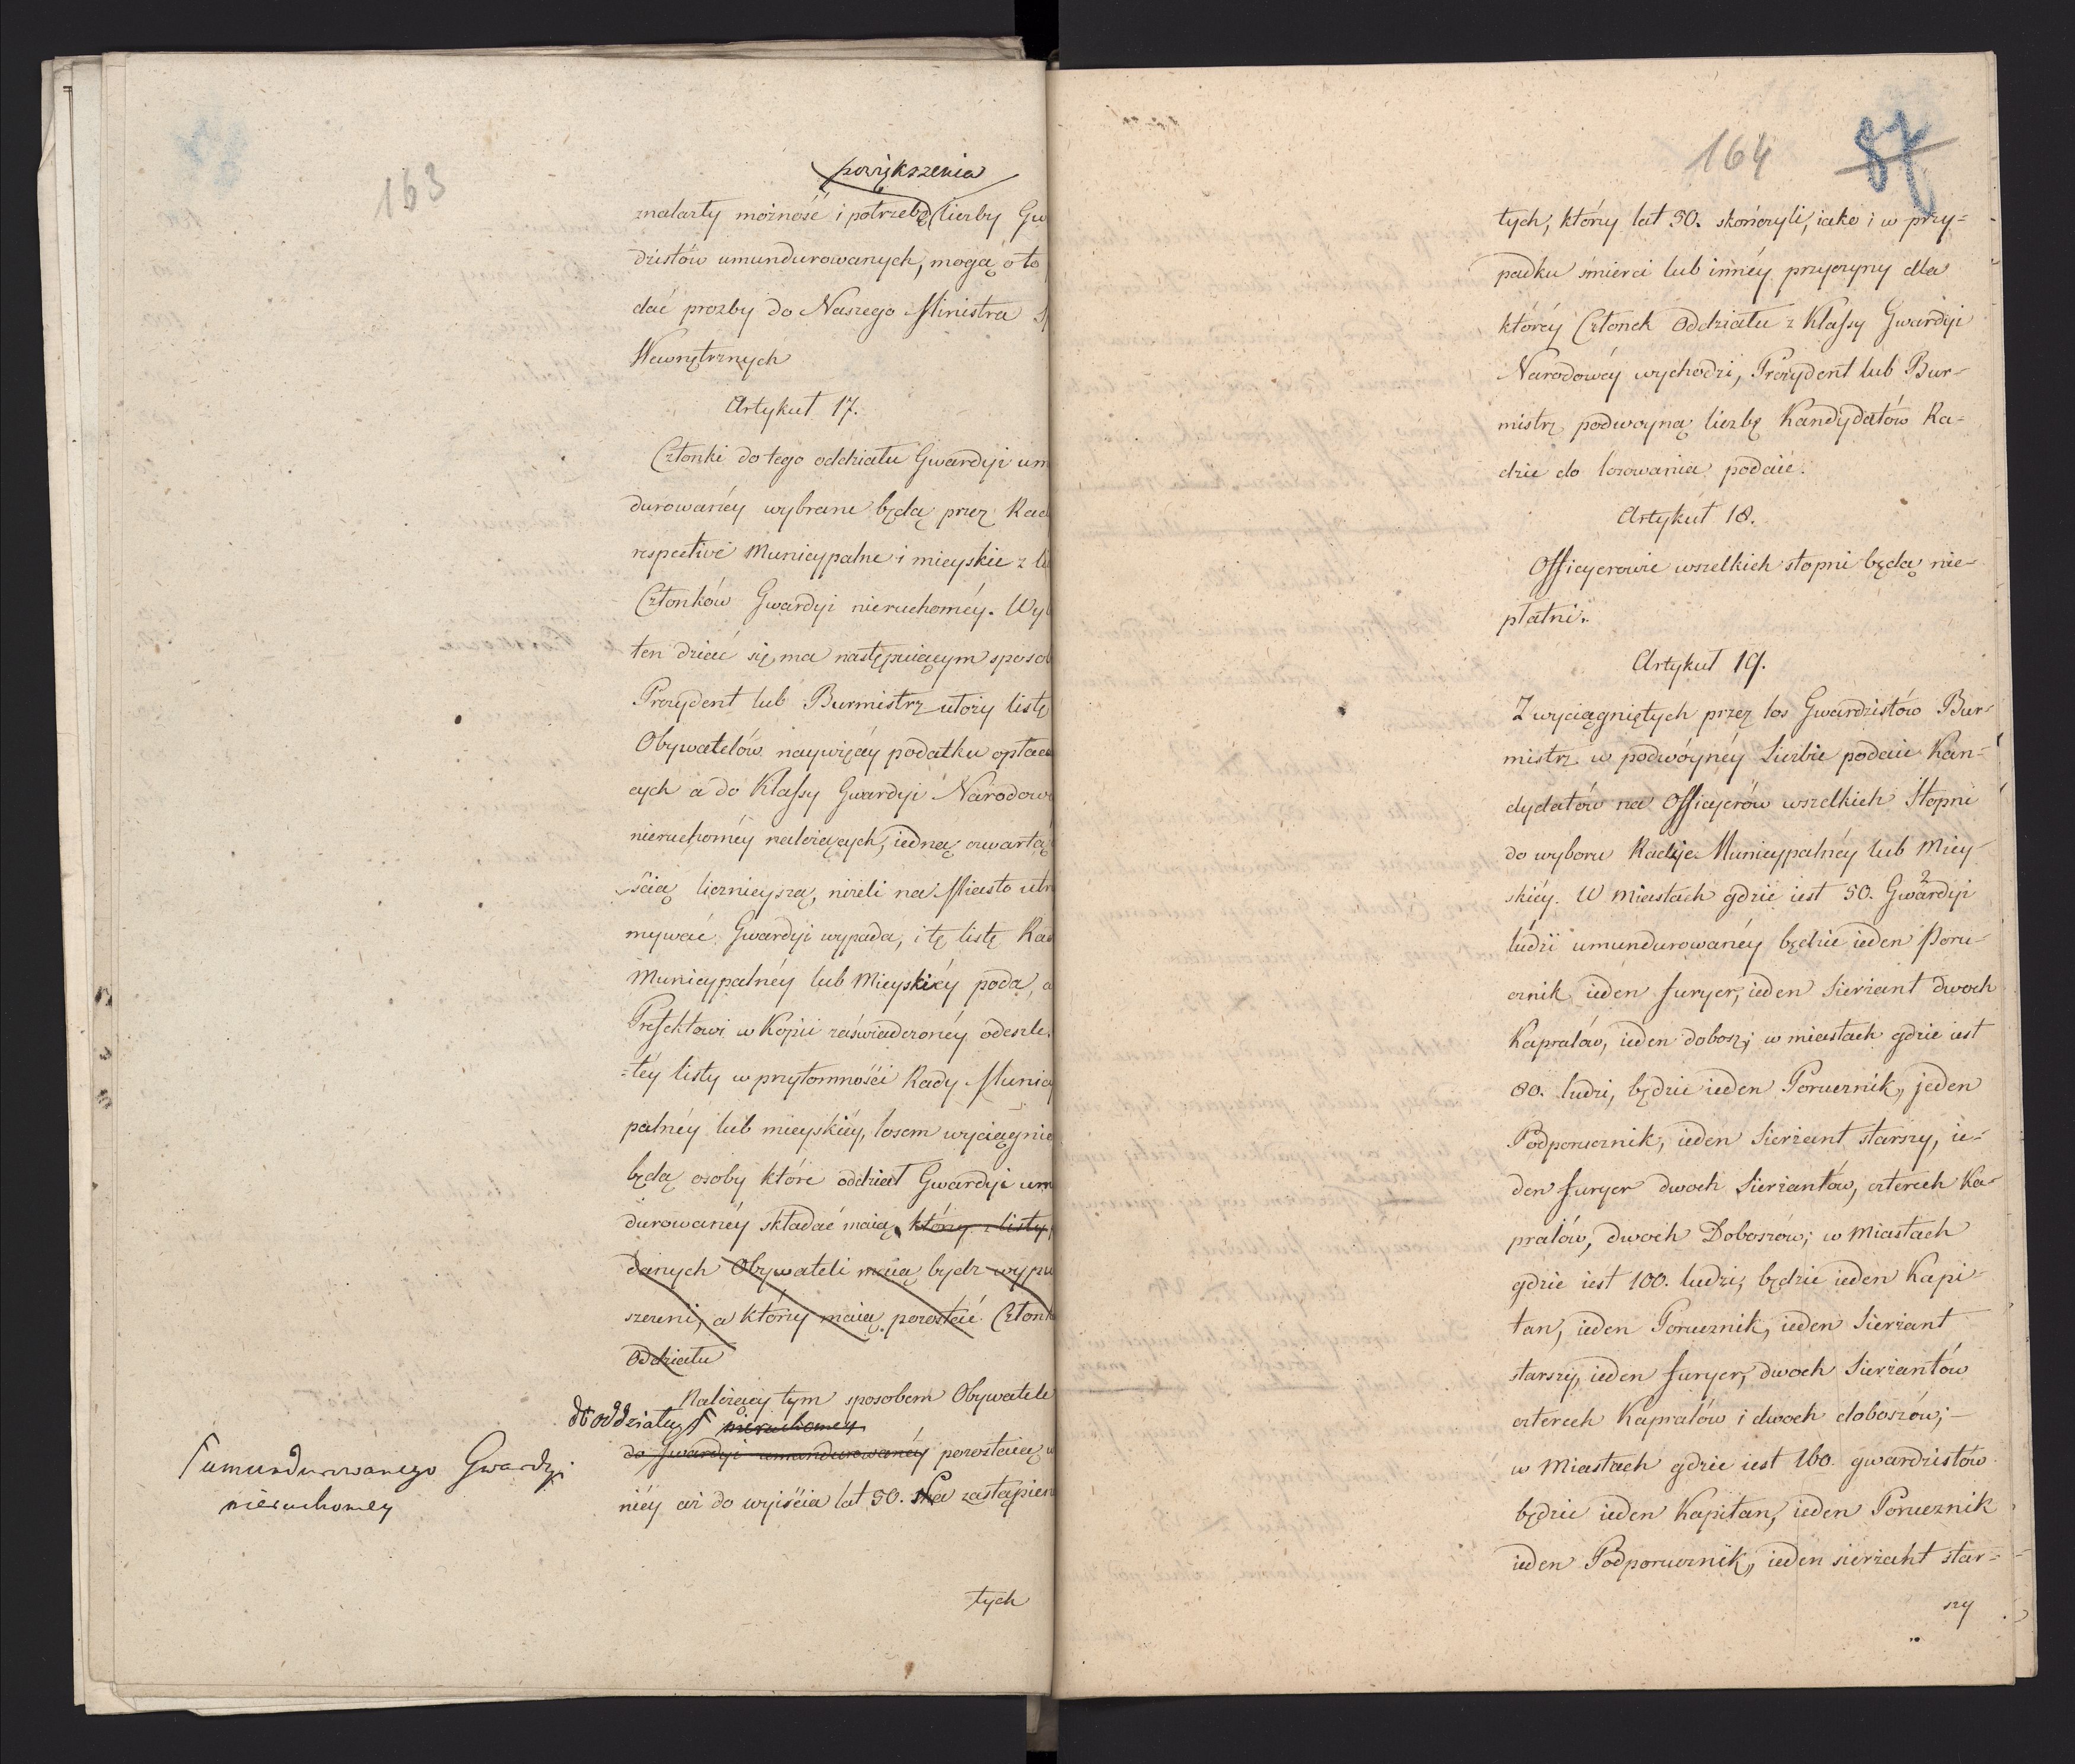 163
powiększenia
znalazły możność i potrzebę liczby Gw
dzistów umundurowanych, mogą o to
dać prozby do Naszego Ministra
Wewnętrznych
Artykuł 17.
Członki do tego oddziału Gwardyi um
durowanéy wybrane będą przez Rad
respectivé Municypalne i mieyskie z
Członków Gwardyi nieruchoméy. Wy
ten dziać się ma następuiącym sposob
Prezydent lub Burmistrz ułoży listę
Obywatelów naywięcéy podatku opłaca
cych a do Klassy Gwardyi Narodow
nieruchoméy należących, iedną czwartą
ścią licznieyszą, niżeli na Miasto utrz
mywać Gwardyi wypada, i tę listę Rad
Municypalnéy lub Mieyskiéy poda, a
Prefektowi w Kopii zaświadczonéy odeszle.
=téy listy w przytomności Rady Munic
palnéy lub mieyskiéy, losem wyciągnie
będą osoby które oddział Gwardyi um
durowanéy składać maią, którzy z listy
danych Obywateli maią bydz wypu
szczeni, a którzy maią pozostać Członk
Oddziału
Należący tym sposobem Obywatele
do oddziału nieruchomey
do Gwardyi umundurowanéy pozostaią w
niéy aż do wyiścia lat 50. Na zastąpien
umundurowanego Gwardyi
nieruchomey
tych
164 87
tych, którzy lat 50. skończyli, iako i w przy=
padku śmierci lub innéy przyczyny dla
któréy Członek Oddziału z Klassy Gwardyi
Narodowéy wychodzi, Prezydent lub Bur-
mistrz podwoyną liczbę Kandydatów Ra=
dzie do losowania podaie.
Artykuł 18.
Officyerowie wszelkich stopni będą nie-
płatni.
Artykuł 19.
Z wyciągniętych przez los Gwardzistów Bur-
mistrz w podwóynéy Liczbie podaie Kan=
dydatów na Officyerów wszelkich Stopni
do wyboru Radzie Municypalnéy lub Miey-
skiéy. W Miastach gdzie iest 50. Gwardyi
ludzi umundurowanéy będzie ieden Poru-
cznik ieden furyer, ieden Sierżant dwoch
Kapralów, ieden dobosz; w miastach gdzie iest
80. ludzi, będzie ieden Porucznik, jeden
Podporucznik, ieden Sierżant starszy, ie-
den furyer dwoch Sierżantów, czterech Ka-
pralów, dwoch Doboszów; w Miastach
gdzie iest 100. ludzi, będzie ieden Kapi-
tan, ieden Porucznik, ieden Sierżant
starszy, ieden furyer, dwoch Sierżantów
czterech Kapralów i dwoch doboszów;-
w Miastach gdzie iest 160. gwardzistów
będzie ieden Kapitan, ieden Porucznik
ieden Podporucznik, ieden sierżant star=
szy